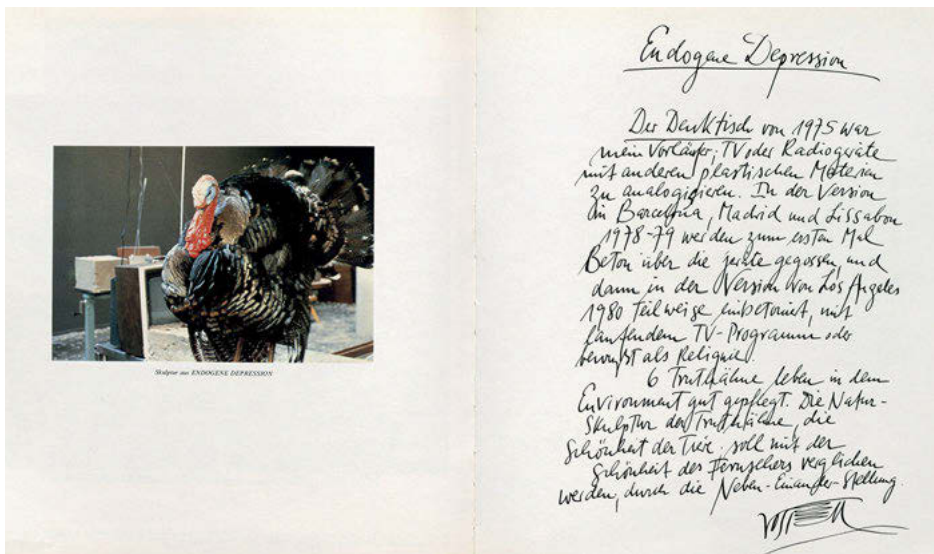 Skulptur aus ENDOGENE DEPRESSION
Endogene Depression
Der Denktisch von 1975 war
mein Vorläufer, TV oder Radiogeräte
mit anderen plastischen Materien
zu analogisieren. In der Version
in Barcelona, Madrid und Lissabon
1978-79 werden zum ersten Mal
Beton über die geräte gegossen, und
dann in der Version von Los Angeles
1980 teilweise einbetoniert, mit
laufendem TV-Programm oder
bewußt als Reliquie.
6 Truthähne leben in dem
Environment gut gepflegt. Die Natur-
Skulptur der Truthähne, die
Schönheit der Tiere soll mit der
Schönheit des Fernsehers verglichen
werden, durch die Neben-Einander-Stellung.
Vostell